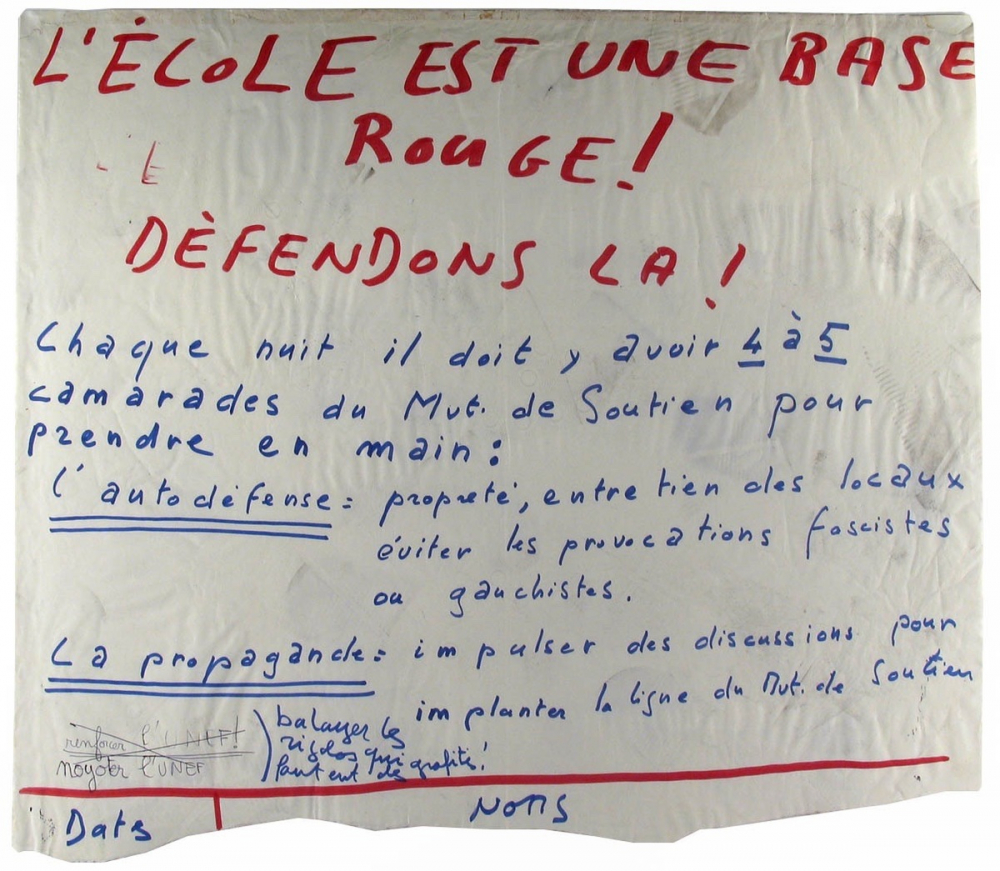 L'ÉCOLE EST UNE BASE
ROUGE!
DÈFENDONS LA !
Chaque nuit il doit y avoir 4 à 5
camarades du Mvt. de Soutien pour
prendre en main :
l'autodéfense : propreté, entretien des locaux
éviter les provocations fascistes
ou gauchistes.
La propagande : impulser des discussions pour
implanter la ligne du Mvt. de Soutien
renforcer l'UNEF!
noyoter l'UNEF
balayer les
rigolos qui
foutent des grafitis!
Dates
NOMS